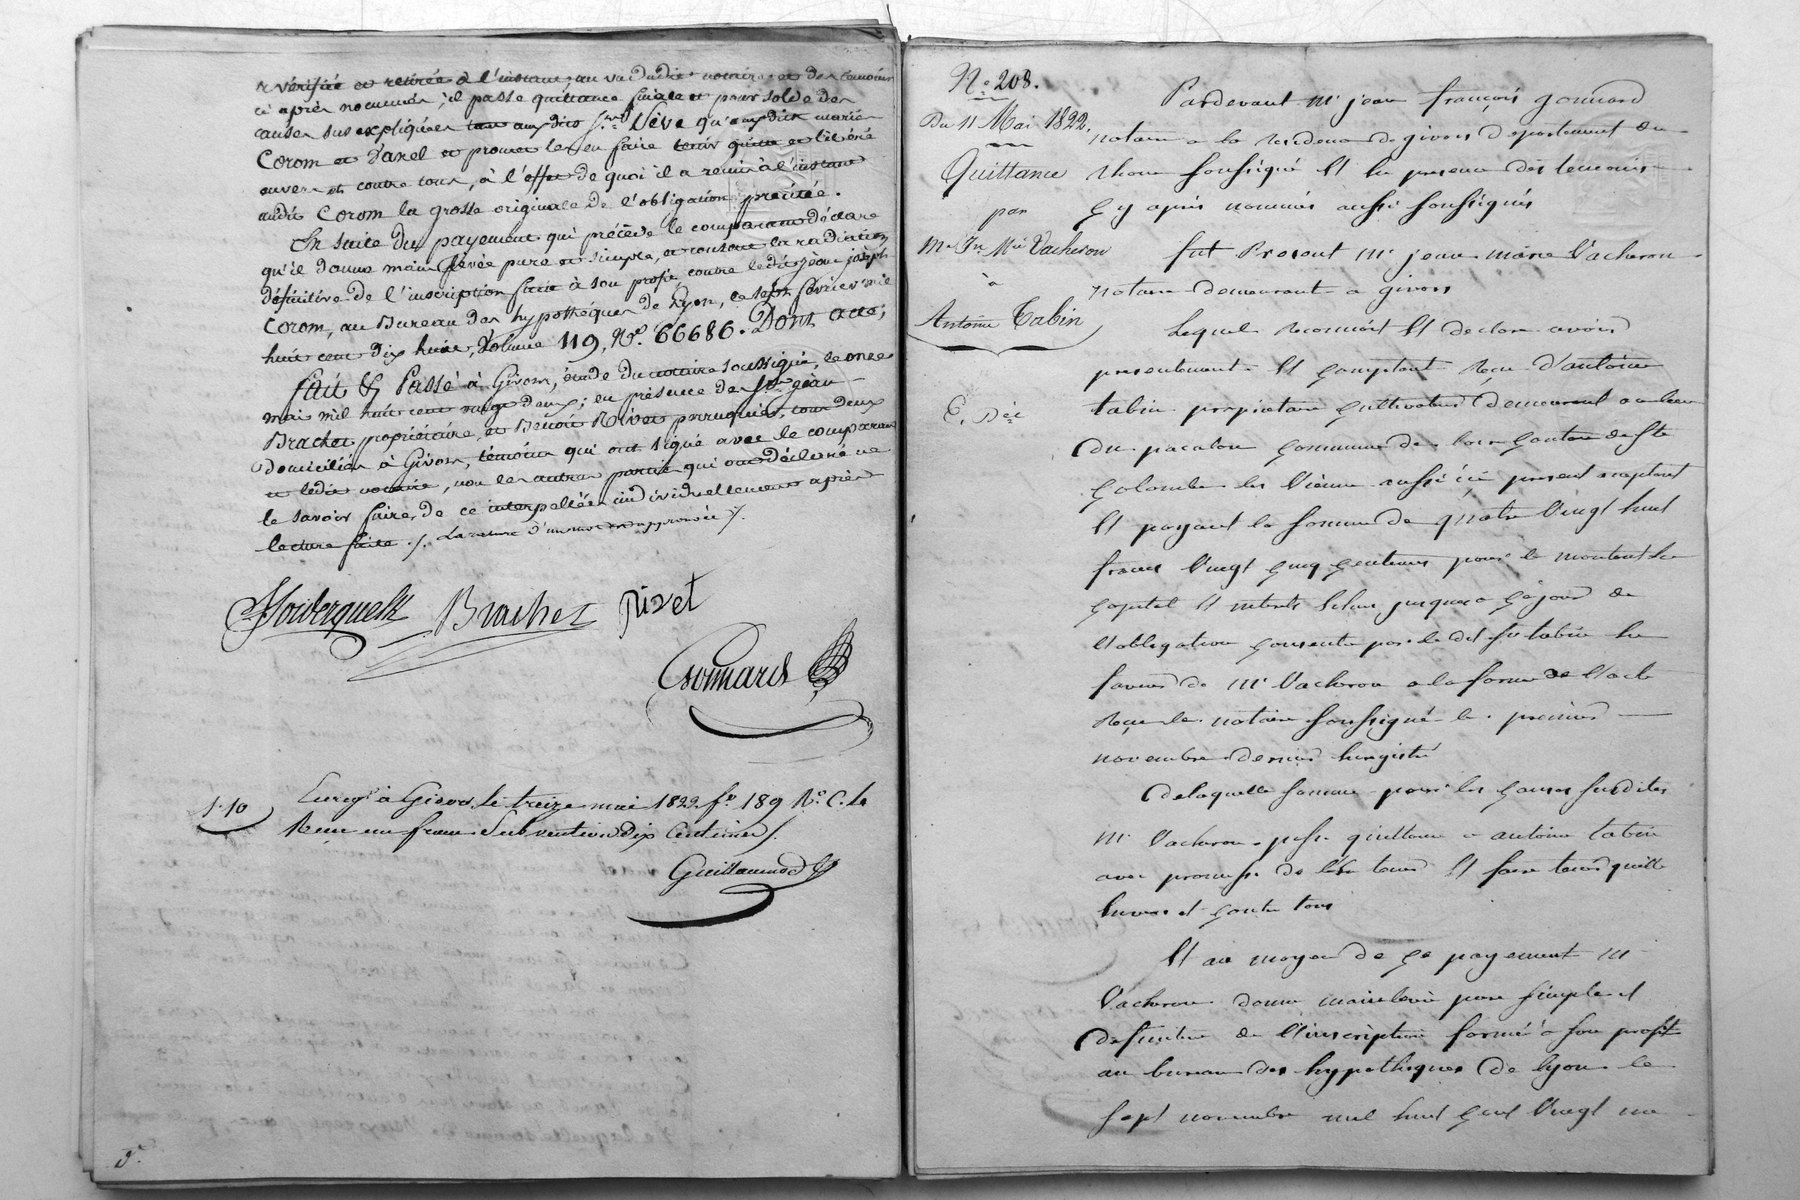 & vérifiée et retirée à l'instant, au vu dudit notaire et des témoins
ci après nommés; il passe quittance finale et pour solde des
causes sus expliquées tant audit Sève qu'auxdits mariés
Corom et Danel et promet les en faire tenir quitte et libéré
envers et contre tous, à l'effet de quoi il a remis à l'instant
audit Corom la grosse originale de l'obligation précitée.
En suite du payement qui précède le comparant déclare
qu'il donne main levée pure et simple, et consent la radiation
définitive de l'inscription faite à son profit, contre ledit jean joseph
Corom, au Bureau des hypothèques de Lyon, le sept février mil
huit cent dix huit, Volume 119, N°. 66686. Dont acte;
Fait & Passé à Givors, étude du notaire soussigné, le onze
mai mil huit cent vingt deux; en présence de Sr jean
Brachet propriétaire, et Benoit Rivet perruquier, tous deux
domiciliés à Givors, témoins qui ont signé avec le comparant
et ledit notaire, non les autres parties qui ont déclaré ne
le savoir faire, de ce interpellées individuellement après
lecture faite ./. La rature d'un mot est approuvée ./.
Brachet Rivet
Gonnard
1-10
Enregé à Givors, le treize mai 1822 fo 189 Ro C. 1e
Reçu un franc Subvention dix Centimes ./.
Guillaumod
No 208.
Du 11 Mai 1822.
Quittance
par
Me Jn Mie Vacheron
à
Antoine Tabin
E. Déé
Pardevant Mr jean françois gonnard
notaire a la residence de givors departement du
rhone soussigné Et en presence des temoins
cy après nommés aussi soussignés
fut Present Mr jean marie Vacheron
notaire demeurant a givors
Lequel reconnoit Et declare avoir
presentement Et comptant reçu d'antoine
tabin propriétaire cultivateur demeurant au lieu
du pacalon commune de loire canton de Ste
Colombe les Vienne aussi ici present acceptant
Et payant la somme de quatre Vingt huit
francs Vingt cinq centimes pour le montant en
capital Et interets Echus jusques a ce jour de
l'obligation consentie par le dit Sr tabin en
faveur de Mr Vacheron a la forme de l'acte
reçu le notaire soussigné le premier
novembre dernier Enregistré
De laquelle somme pour les causes susdites
Mr Vacheron passe quittance a antoine tabin
avec promesse de l'En tenir Et faire tenir quitte
Envers et contre tous
Et au moyen de ce payement Mr
Vacheron donne mainlevée pure simple et
definitive de l'inscription formée a son profit
au bureau des hypothèques de lyon le
sept novembre mil huit cent Vingt un